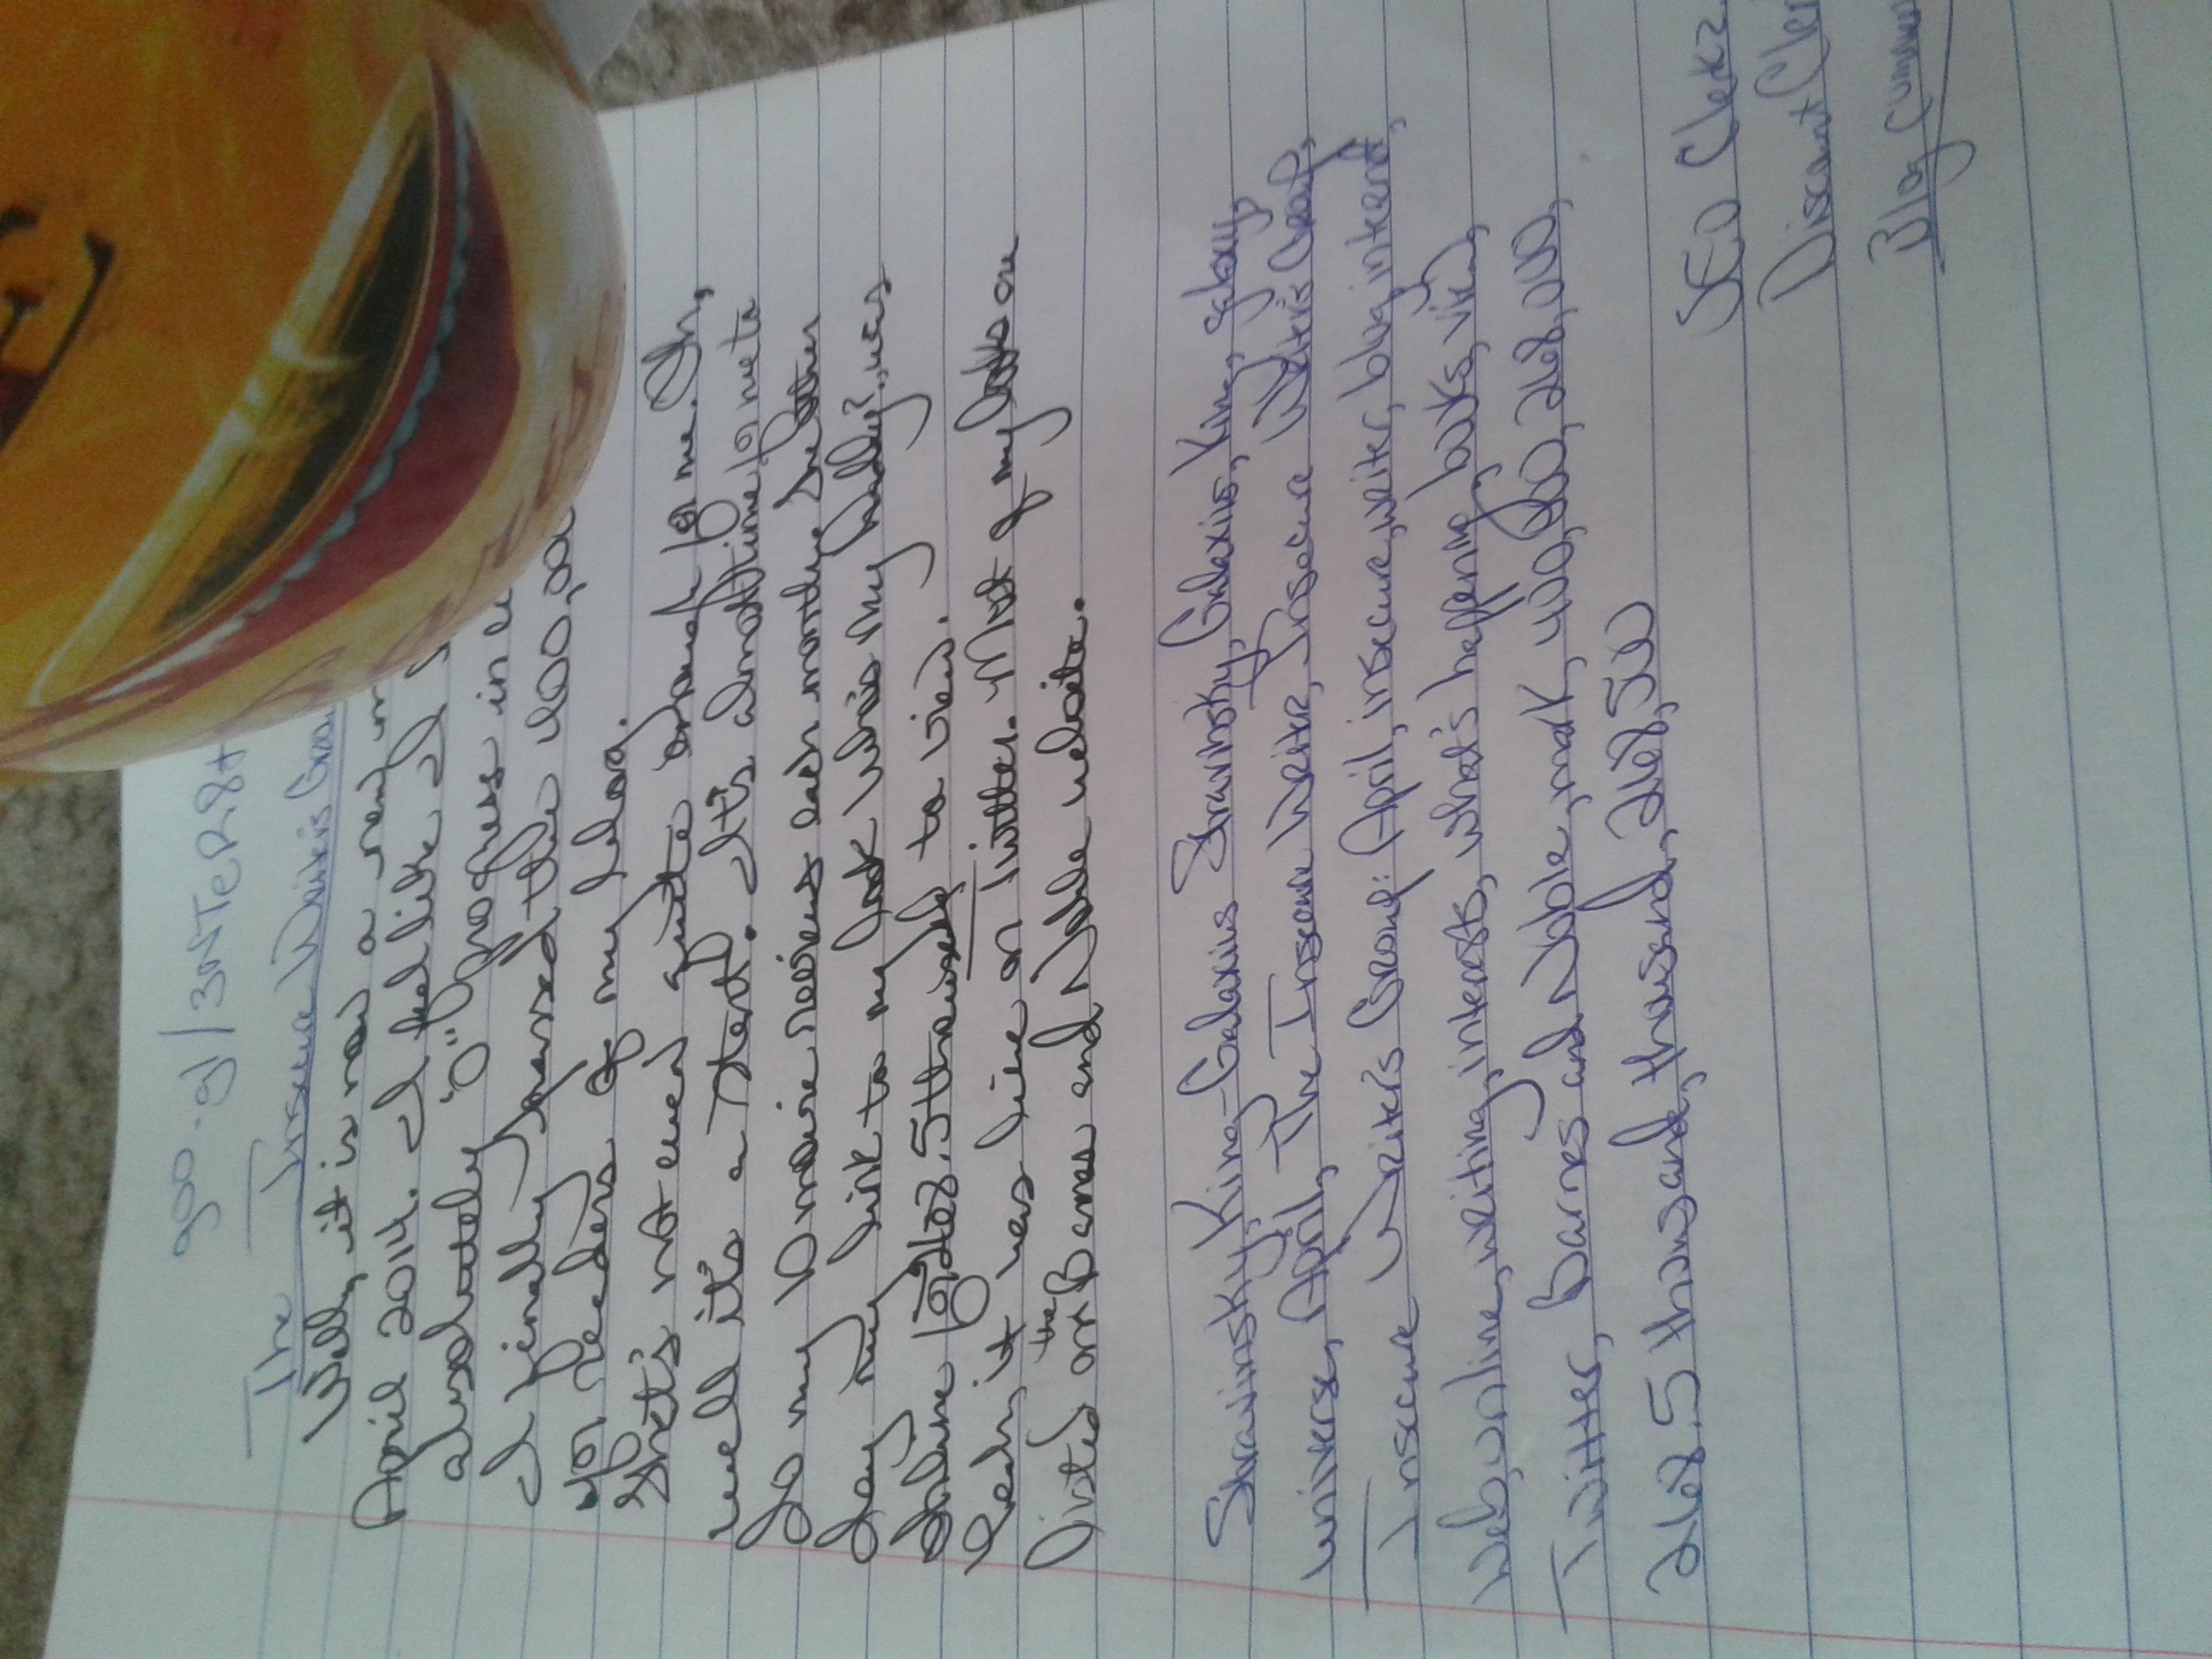 goo.gl/3NTeR8
The Insecure Writer's Grou
Well, it is now a new m
April 2014. I feel like I
absolutely "0" progress in
I finally passed the 400,00
for readers of my blog.
that's not even quite enough for me. Oh,
well it's a start. It's another
So my Empire news each month the other
day my link to my book Who's My Daddy?, was
Shown for 268.5 thousand to view.
Yeah, it was live on twitter. Most of my books are
listed on the Barnes and Noble website.
Stravinsky, King-Galaxius Stravinsky, Galaxius, King, galaxy,
universe, April, the Insecure Writer, Insecure Writer's Group,
Insecure Writer's Group: April, insecure, writer, blog, internet,
web, online, writing, interests, what's happening, books, view,
Twitter, Barnes and Noble, mark, 400,000, 268,000,
268.5 thousand, thousand, 268,500
SEO Clerkz
Discount Cle
Blog Commen